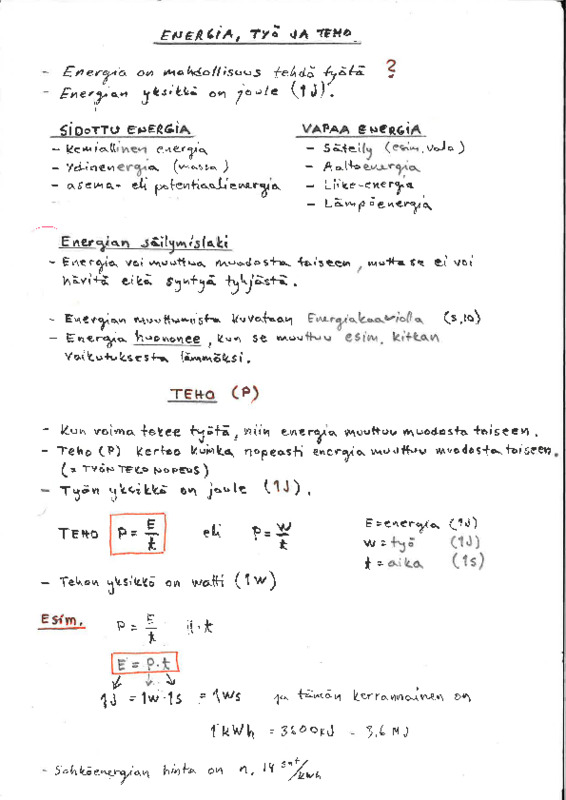 ENERGIA, TYÖ JA TEHO
- Energia on mahdollisuus tehdä työtä ?
- Energian yksikkö on joule (1J).
SIDOTTU ENERGIA
- Kemiallinen energia
- Ydinenergia (massa)
- asema- eli potentiaalienergia
VAPAA ENERGIA
- Säteily (esim. valo)
- Aaltoenergia
- Liike-energia
- Lämpöenergia
Energian säilymislaki
- Energia voi muuttua muodosta toiseen, mutta se ei voi
hävitä eikä syntyä tyhjästä.
- Energian muuttumista kuvataan Energiakaaviolla (s.10)
- Energia huononee, kun se muuttuu esim. kitkan
vaikutuksesta lämmöksi.
TEHO (P)
- Kun voima tekee työtä, niin energia muuttuu muodosta toiseen.
- Teho (P) kertoo kuinka nopeasti energia muuttuu muodosta toiseen.
(= TYÖN TEKO NOPEUS)
- Työn yksikkö on joule (1J).
TEHO P = E/t eli P = W/t
E = energia (1J)
W = työ (1J)
t = aika (1s)
- Tehon yksikkö on watti (1W)
Esim. P = E/t || · t
E = P · t
1J = 1W · 1s = 1Ws ja tämän kerrannainen on
1 kWh = 3600 kJ = 3,6 MJ
- Sähköenergian hinta on n. 14 snt/kWh